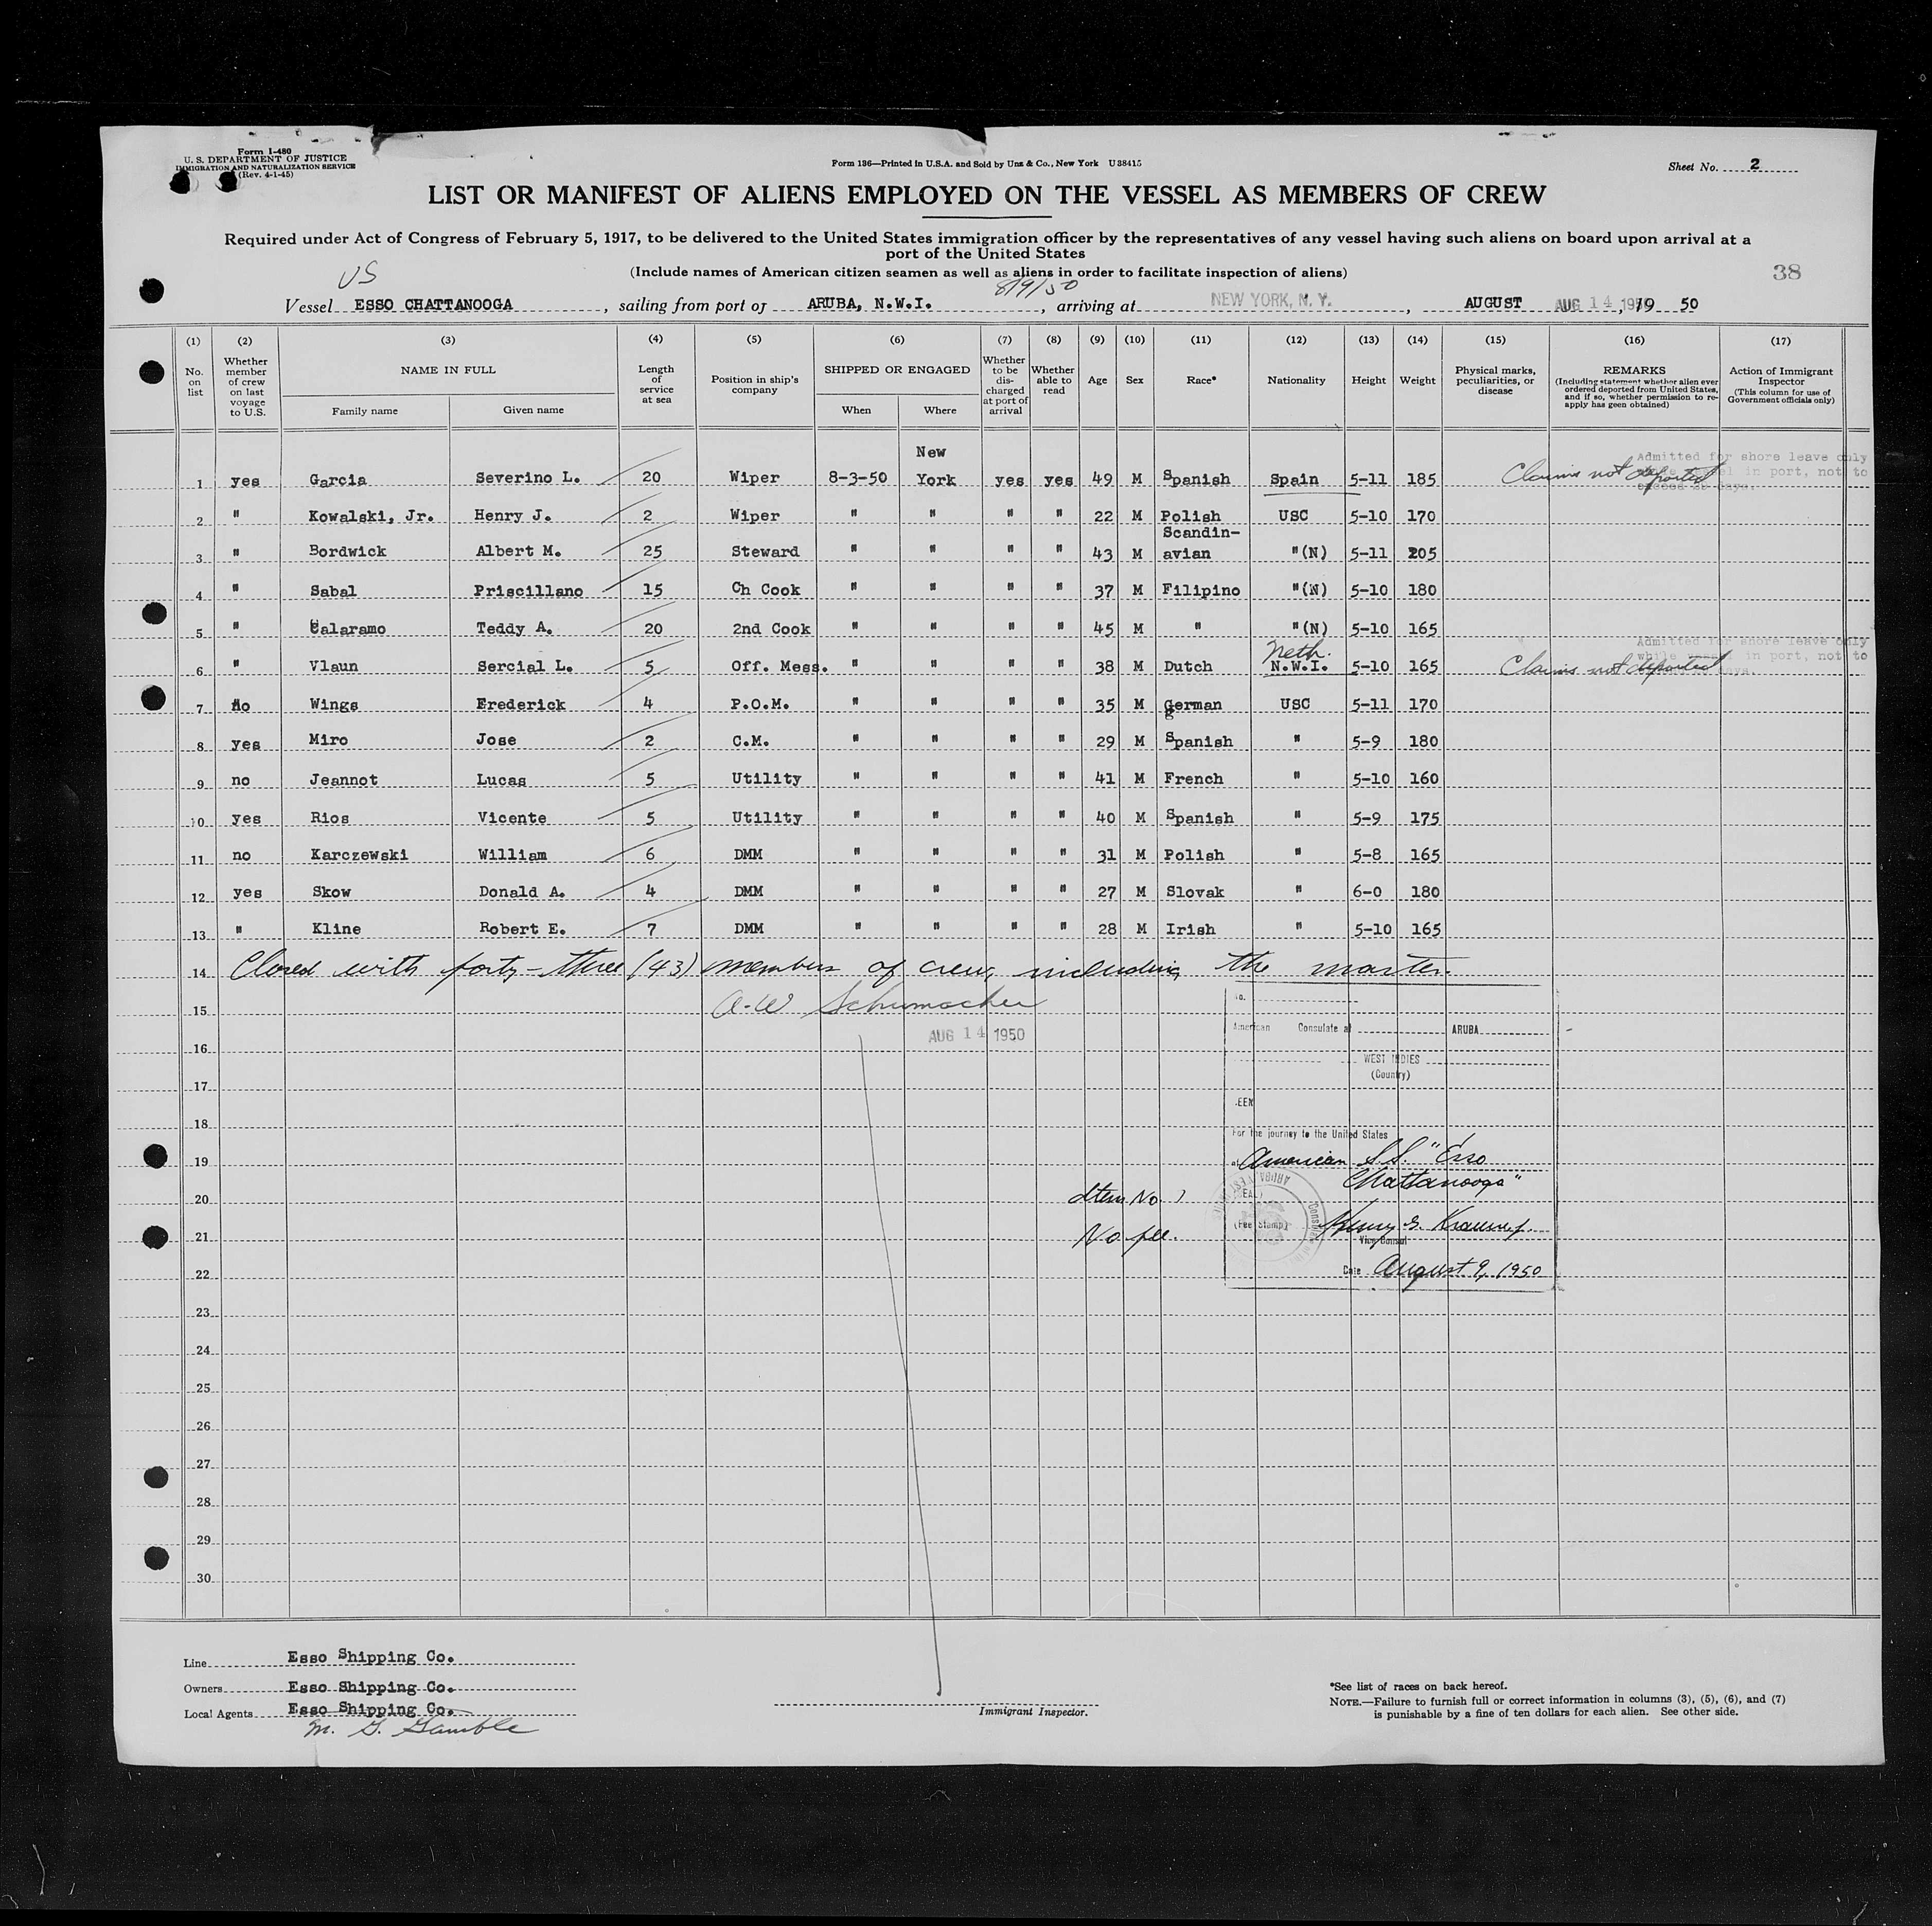 Form I-480
U. S. DEPARTMENT OF JUSTICE
IMMIGRATION AND NATURALIZATION SERVICE
(Rev. 4-1-45)
Form 136—Printed in U.S.A. and Sold by Unz & Co., New York U 38415
Sheet No. 2
LIST OR MANIFEST OF ALIENS EMPLOYED ON THE VESSEL AS MEMBERS OF CREW
Required under Act of Congress of February 5, 1917, to be delivered to the United States immigration officer by the representatives of any vessel having such aliens on board upon arrival at a
port of the United States
(Include names of American citizen seamen as well as aliens in order to facilitate inspection of aliens)
38
US
8/9/50
Vessel ESSO CHATTANOOGA, sailing from port of ARUBA, N.W.I., arriving at NEW YORK, N. Y., AUGUST AUG 14 1950, 19 50
(1) (2) (3) (4) (5) (6) (7) (8) (9) (10) (11) (12) (13) (14) (15) (16) (17)
No. on list
Whether member of crew on last voyage to U.S.
NAME IN FULL
Family name Given name
Length of service at sea
Position in ship's company
SHIPPED OR ENGAGED
When Where
Whether to be discharged at port of arrival
Whether able to read
Age
Sex
Race*
Nationality
Height
Weight
Physical marks, peculiarities, or disease
REMARKS
(Including statement whether alien ever ordered deported from United States, and if so, whether permission to re-apply has geen obtained)
Action of Immigrant Inspector
(This column for use of Government officials only)
1 yes Garcia Severino L. 20 Wiper 8-3-50 New York yes yes 49 M Spanish Spain 5-11 185 Claims not deported
Admitted for shore leave only
in port, not to
2 " Kowalski, Jr. Henry J. 2 Wiper " " " " 22 M Polish USC 5-10 170
3 " Bordwick Albert M. 25 Steward " " " " 43 M Scandin-avian "(N) 5-11 205
4 " Sabal Priscillano 15 Ch Cook " " " " 37 M Filipino "(N) 5-10 180
5 " Calaramo Teddy A. 20 2nd Cook " " " " 45 M " "(N) 5-10 165
6 " Vlaun Sercial L. 5 Off. Mess. " " " " 38 M Dutch Neth. N.W.I. 5-10 165 Claims not deported
Admitted for shore leave only
while vessel in port, not to
7 no Wings Frederick 4 P.O.M. " " " " 35 M German USC 5-11 170
8 yes Miro Jose 2 C.M. " " " " 29 M Spanish " 5-9 180
9 no Jeannot Lucas 5 Utility " " " " 41 M French " 5-10 160
10 yes Rios Vicente 5 Utility " " " " 40 M Spanish " 5-9 175
11 no Karczewski William 6 DMM " " " " 31 M Polish " 5-8 165
12 yes Skow Donald A. 4 DMM " " " " 27 M Slovak " 6-0 180
13 " Kline Robert E. 7 DMM " " " " 28 M Irish " 5-10 165
14 Closed with forty-three (43) members of crew, including the master.
15 A. W Schumacher
16 AUG 14 1950
17
18
19
20
21
22
23
24
25
26
27
28
29
30
No.
American Consulate at ARUBA
WEST INDIES
(Country)
SEEN
For the journey to the United States
American S.S. "Esso
Chattanooga"
Item No 1
No fee.
(Fee Stamp)
Vice Consul
Date August 9, 1950
Line Esso Shipping Co.
Owners Esso Shipping Co.
Local Agents Esso Shipping Co.
M. G. Gamble
Immigrant Inspector.
*See list of races on back hereof.
NOTE.—Failure to furnish full or correct information in columns (3), (5), (6), and (7)
is punishable by a fine of ten dollars for each alien. See other side.